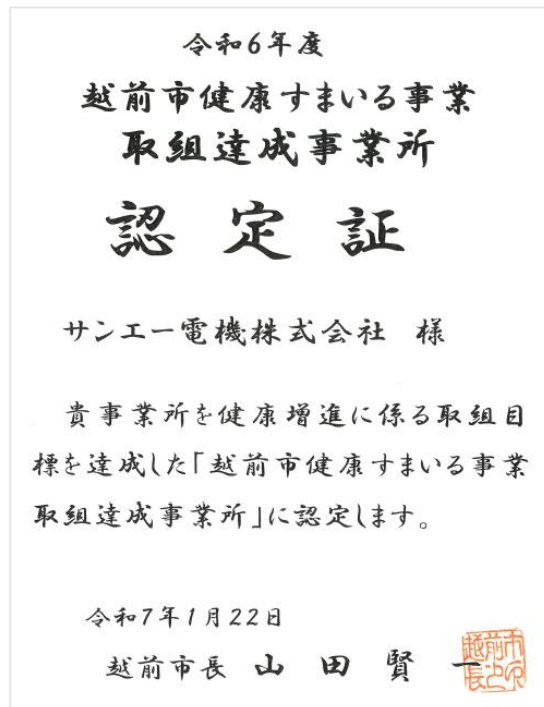 令和6年度
越前市健康すまいる事業
取組達成事業所
認定証
サンエー電機株式会社 様
貴事業所を健康増進に係る取組目
標を達成した「越前市健康すまいる事業
取組達成事業所」に認定します。
令和7年1月22日
越前市長 山田賢一
越前市長之印